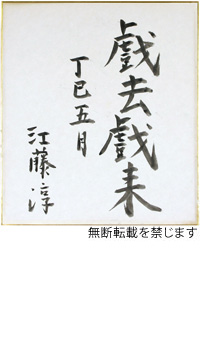 戯去戯来
丁巳五月
江藤淳
無断転載を禁じます